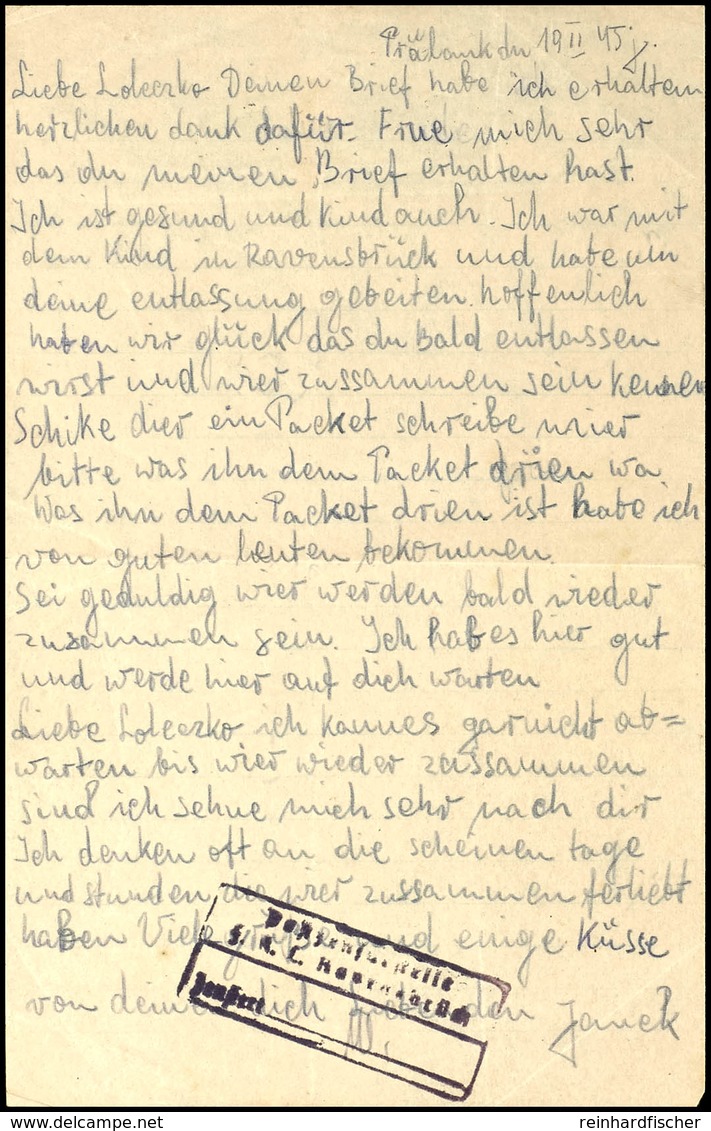 Prälank dn 19 II 45 j.
Liebe Loleczko Deinen Brief habe ich erhalten
herzlichen dank dafür. Frue mich sehr
das du meinen Brief erhalten hast.
Ich ist gesund und Kind auch. Ich war mit
dem Kind in Ravensbrück und habe um
deine entlassung gebeiten. hoffenlich
haben wir glück das du Bald entlassen
wirst und wier zussammen sein kennen
Schike dier ein Packet schreibe mier
bitte was ihn dem Packet drien wa
Was ihn dem Packet drien ist habe ich
von guten leuten bekommen.
Sei geduldig wier werden bald wieder
zusammen sein. Ich hab es hier gut
und werde hier auf dich warten
Liebe Loleczko ich kannes garnicht ab=
warten bis wier wieder zussammen
sind ich sehne mich sehr nach dir
Ich denken oft an die scheinen tage
und stunden die wier zussammen ferliebt
haben Viele grüße und einige Küsse
von deinem dich liebenden Janek
Postzensurstelle
F. K. L. Ravensbrück
Zensiert
reinhardfischer